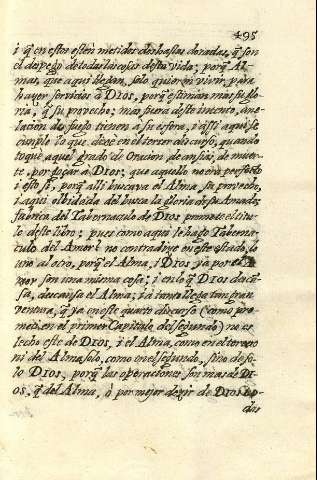 495
i q̃ en estos estèn metidos dos hastas doradas, q̃ son
el despego de todas las cosas desta vida; porq̃ Al-
mas, que aqui llegan, solo quieren vivir, para
hazer servicios à DIOS, porq̃ estiman mas su glo-
ria, q̃ su provecho; mas fuera deste intento, ane-
lacion de fuego tienen a su esfera, i assi aqui se
cumple lo que dixe en el tercer discurso, quando
toquè aquel grado de Oracion de ansias de muer-
te, por gozar à DIOS; que aquello no era perfecto
i esto si, porq̃ alli buscava el Alma su provecho,
i aqui olvidada del busca la gloria de su Amado;
fabrica del Tabernaculo de DIOS promete el titu-
lo deste libro; pues como aqui le hago Taberna-
culo del Amor? no contradize en este estado, lo
uno al otro, porq̃ el Alma, i DIOS ya por el
mor son una misma cosa; i en lo q̃ DIOS descan-
sa, descansa el Alma; i à tanto llega tan gran
ventura, q̃ ya en este quarto discurso (como pro-
meti en el primer Capitulo del segundo) no es
lecho este de DIOS, i el Alma, como en el tercero
ni del Alma solo, como en el segundo, sino de so-
lo DIOS, porq̃ las operaciones son mas de DI-
OS, q̃ del Alma, ò por mejor dezir de DIOS to-
das